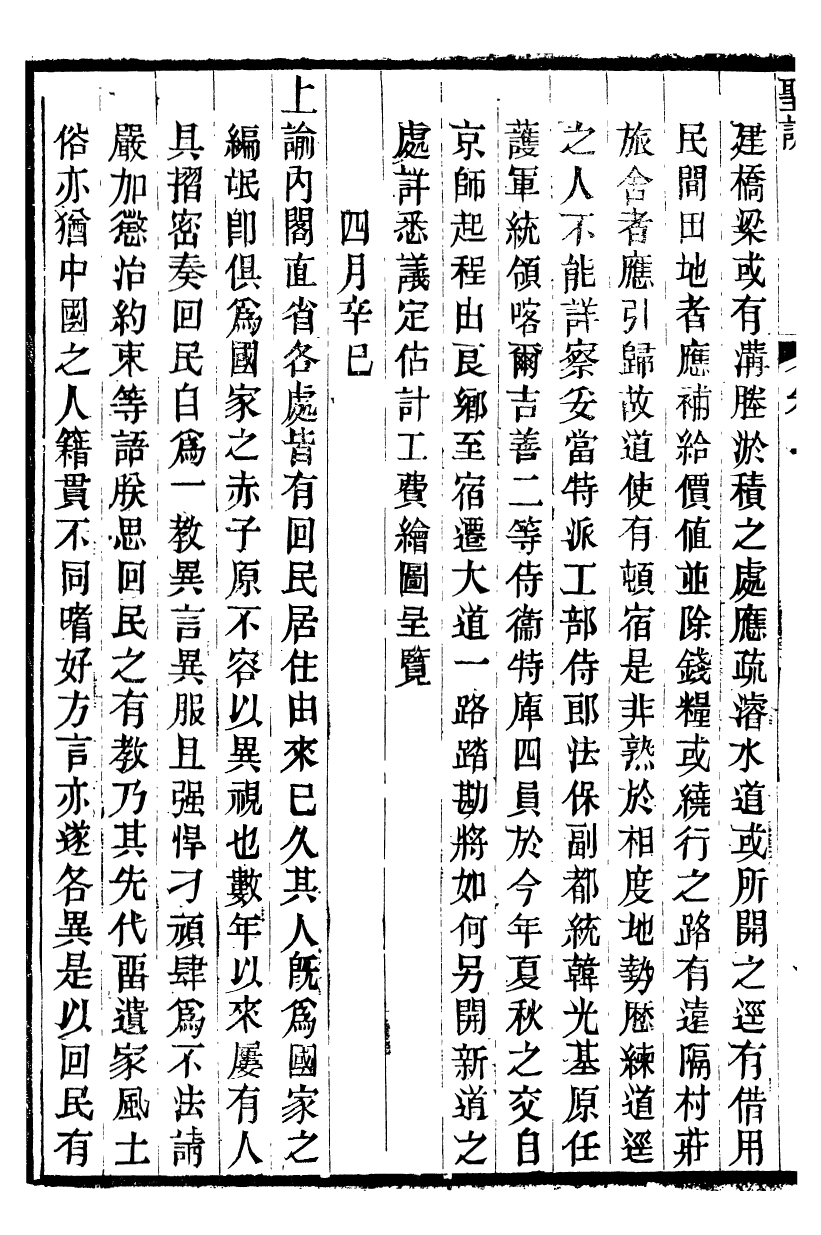 聖訓
建橋梁或有溝塍淤積之處應疏濬水道或所開之逕有借用
民間田地者應補給價值並除錢糧或繞行之路有遠隔村莊
旅舍者應引歸故道使有頓宿是非熟於相度地勢歷練道逕
之人不能詳察妥當特派工部侍郎法保副都統韓光基原任
護軍統領喀爾吉善二等侍衞特庫四員於今年夏秋之交自
京師起程由良鄉至宿遷大道一路踏勘將如何另開新道之
處詳悉議定估計工費繪圖呈覽
四月辛巳
上諭內閣直省各處皆有回民居住由來已久其人旣爲國家之
編氓卽俱爲國家之赤子原不容以異視也數年以來屢有人
具摺密奏回民自爲一教異言異服且强悍刁頑肆爲不法請
嚴加懲治約束等語朕思回民之有教乃其先代畱遺家風土
俗亦猶中國之人籍貫不同嗜好方言亦遂各異是以回民有